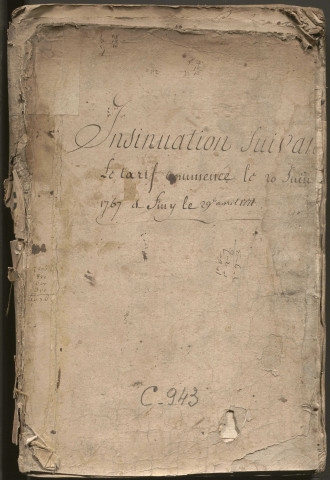 Insinuation suivan
Le tarif commencé le 20 Juin
1767 et finy le 29e avril 1771
C-943